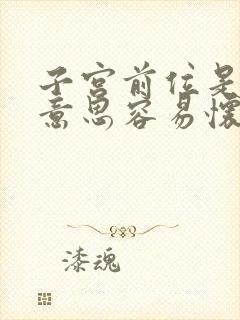 子宫前位是
意思容易怀
漆魂